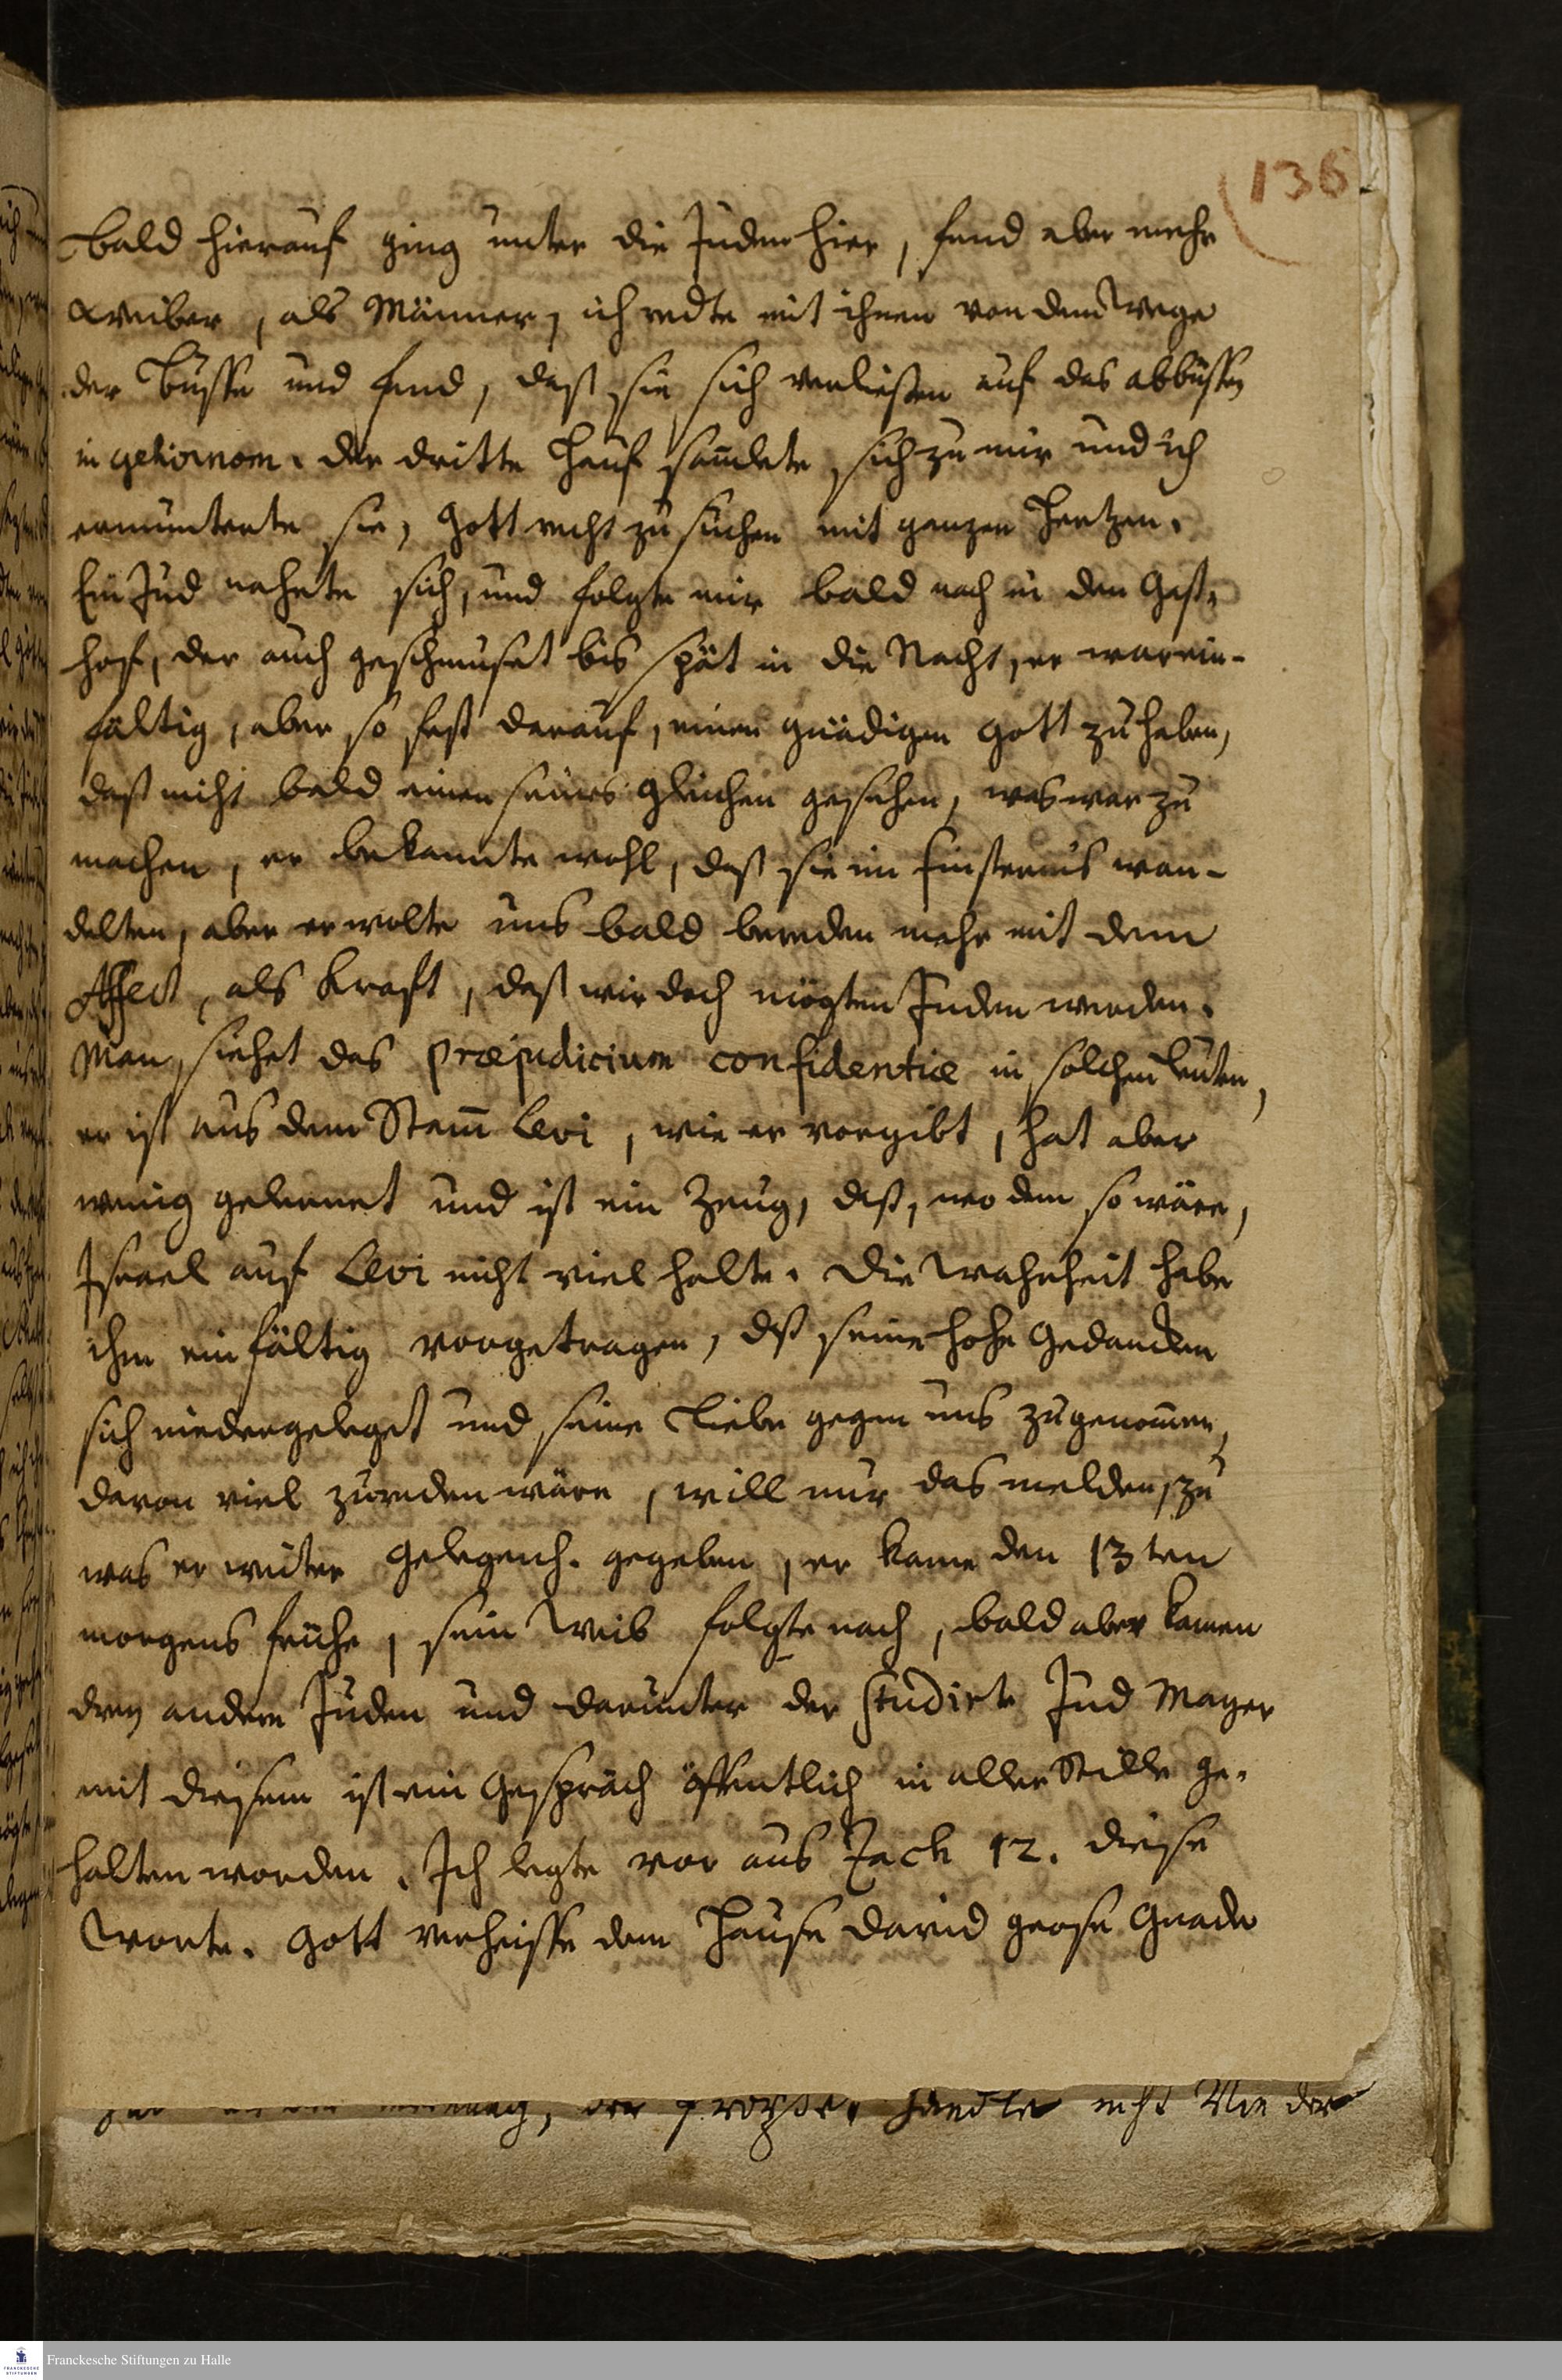 136
bald hierauf ging unter die Juden hier, fand aber mehr
Weiber, als Männer, ich redte mit ihnen von dem Wege
der Busse und fand, daß sie sich verliesen auf das abbüssen
in gehinnom. der dritte Hauf samlete sich zu mir und ich
ermunterte sie, Gott recht zu suchen mit ganzen Hertzen.
Ein Jud nahete sich, und folgte mir bald nach in den Gast-
hof, der auch geschmuset bis spät in die Nacht, er war ein-
fältig, aber so fest darauf, einen gnädigen Gott zu haben,
daß nicht bald einen seines gleichen gesehen, was war zu
machen, er bekannte wohl, daß sie im Finsternis wan-
delten, aber er wolte uns bald bereden mehr mit dem
Affect, als Kraft, daß wir doch mögten Juden werden.
Man siehet das præjudicium confidentiæ in solchen Leuten,
er ist aus dem Stam Levi, wie er vorgibt, hat aber
wenig gelernet und ist ein Zeug, daß, wo dem so wäre,
Israel auf Levi nicht viel halte. Die Wahrheit habe
ihm einfältig vorgetragen, dß seine hohe Gedancken
sich niedergeleget und seine Liebe gegen uns zugenomen,
davon viel zu reden wäre, will nur das melden, zu
was er weiter Gelegenh. gegeben, er kame den 13ten
morgens frühe, sein Weib folgte nach, bald aber kamen
drey andere Juden und darunter der studirte Jud Mayer
mit diesem ist ein Gespräch öffentlich in aller Stille ge-
halten worden. Ich legte vor aus Zach 12. diese
Worte. Gott verheisse dem Hause David grose Gnade
der handle nicht der
Franckesche Stiftungen zu Halle